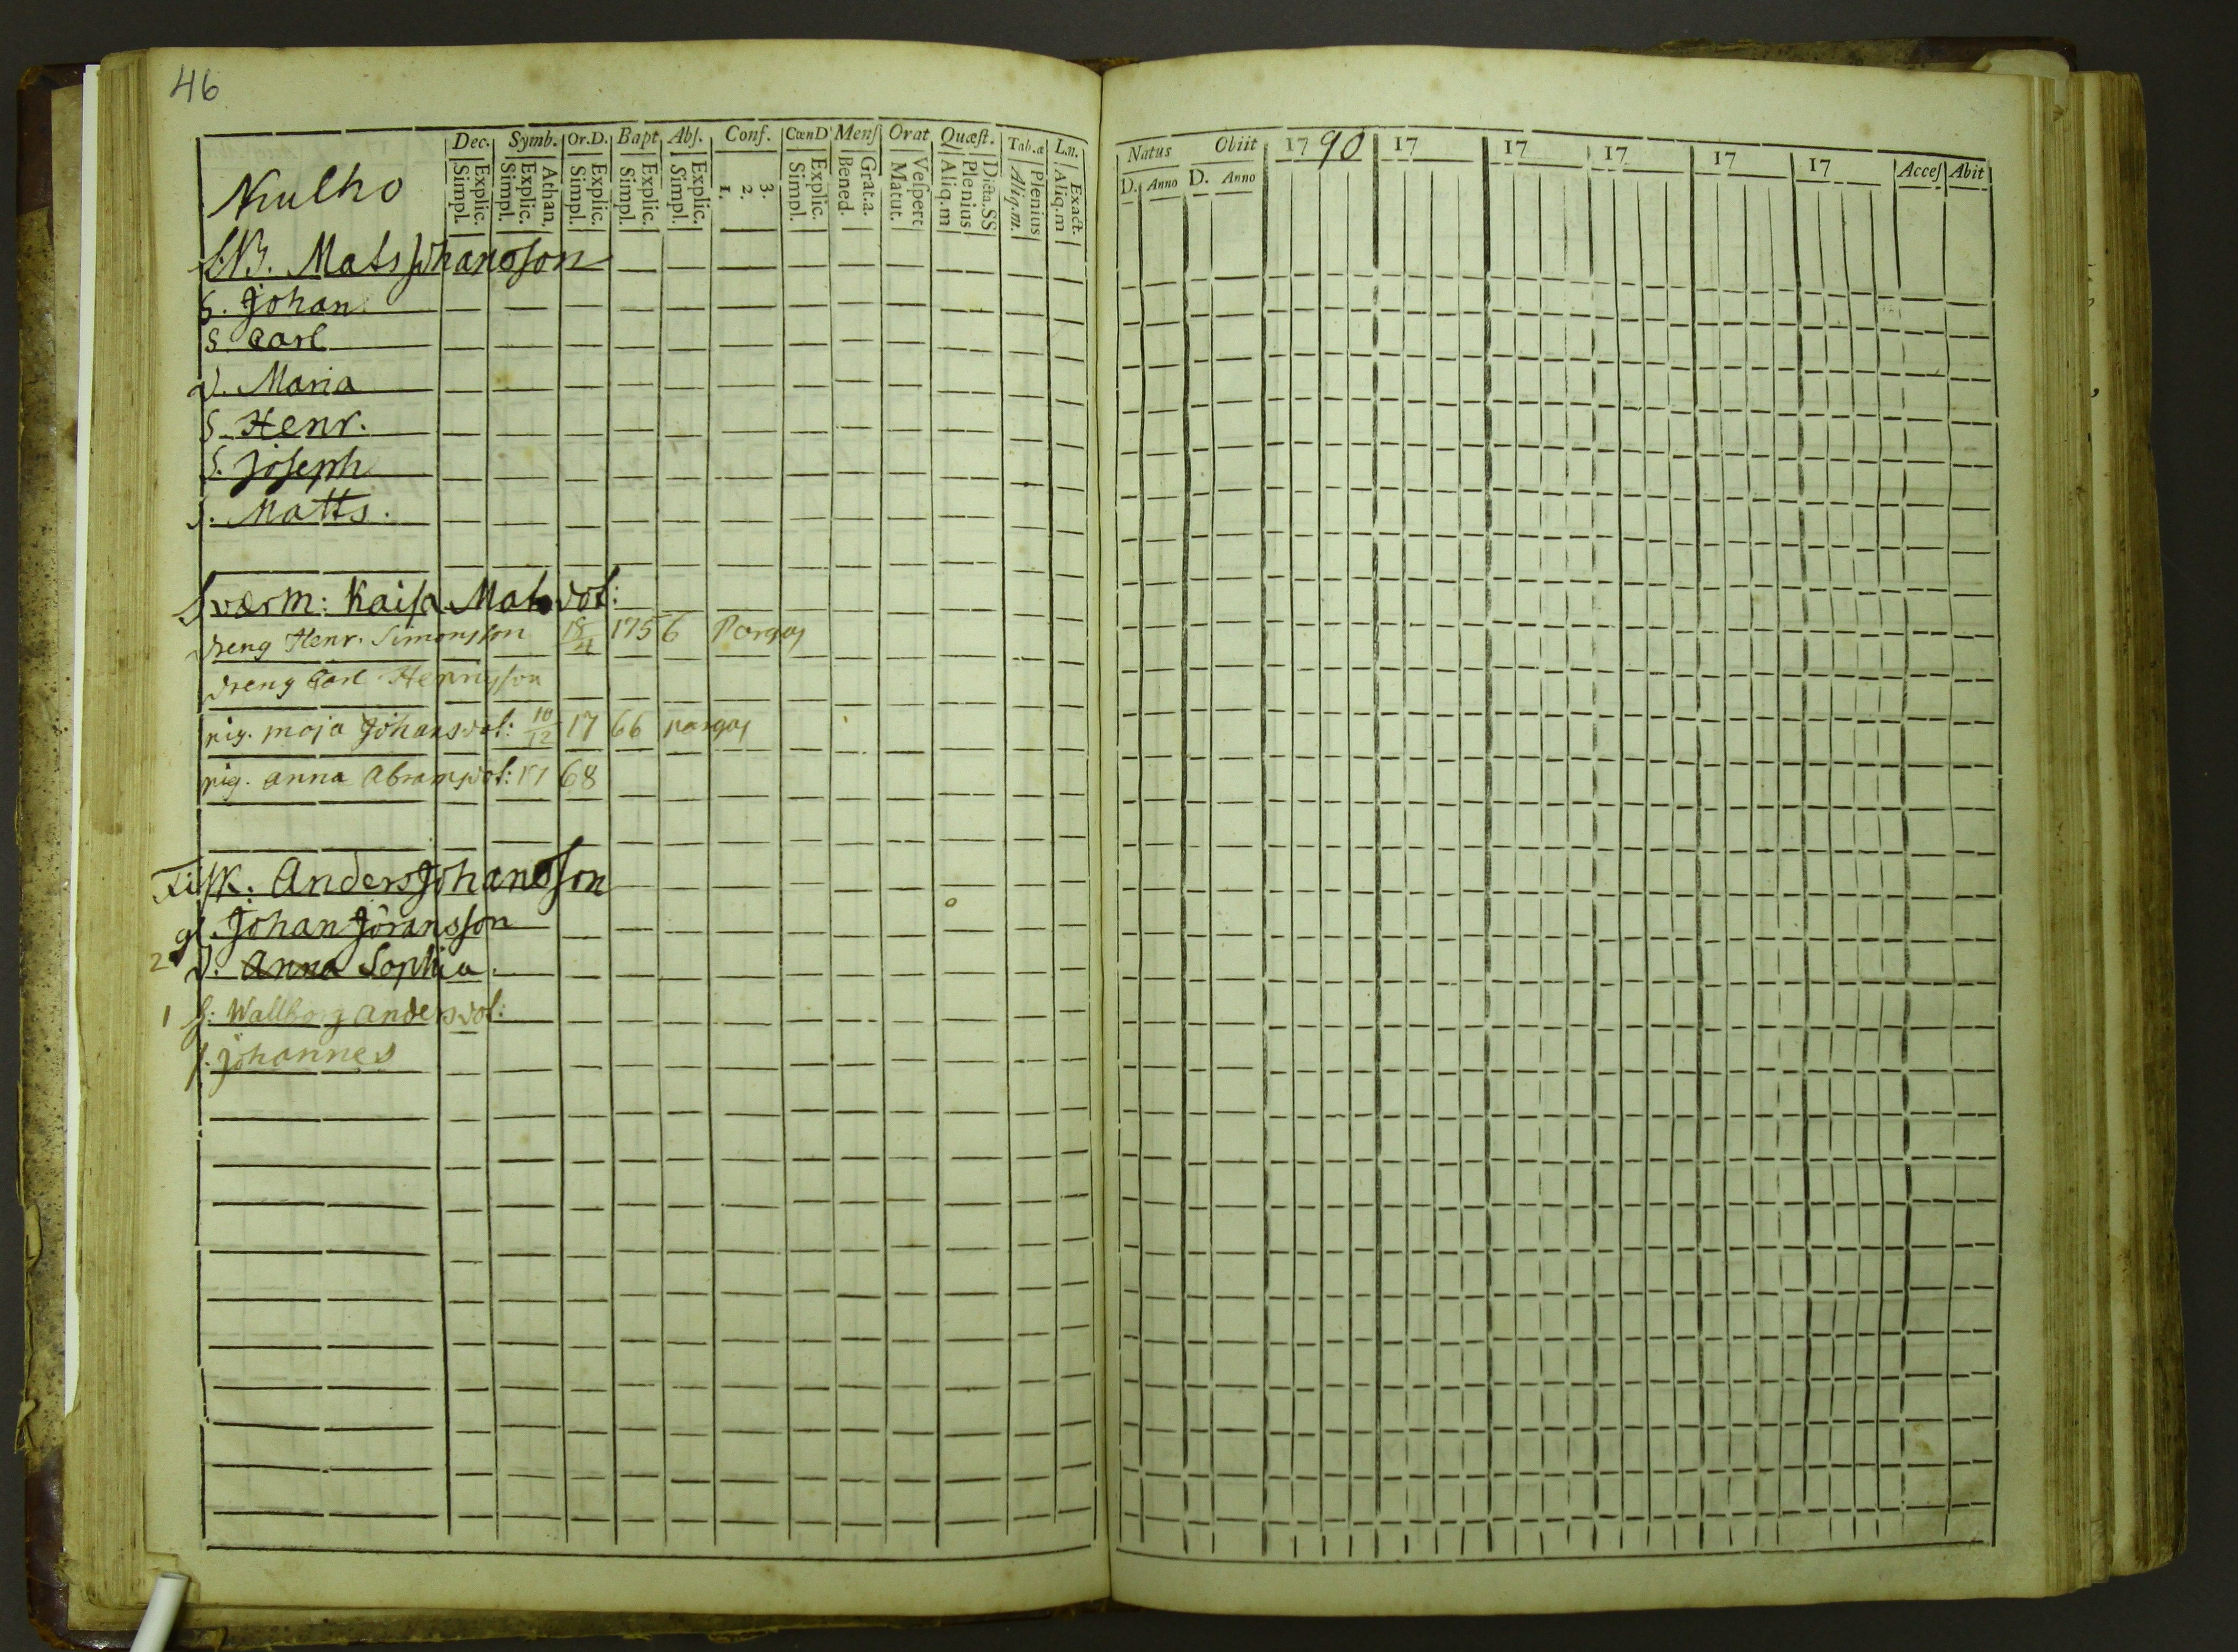 46
Dec. Symb. Or.D. Bapt. Abſ. Conf. CœnD Menſ Orat Quæſt. Tab.æ L.n.
Explic. Simpl. Athan. Explic. Simpl. Explic. Simpl. Explic. Simpl. Explic. Simpl. 3. 2. 1. Explic. Simpl. Grat.a. Bened. Veſpert Matut. Dicta.SS Plenius Aliq.m Plenius Aliq.m. Exact. Aliq.m
Mats Johansson
S. Johan
S. Carl
D. Maria
S. Henr.
S. Joseph
S. Matts.
Sværm: Kaisa Matsdot:
dreng Henr. Simonsson 18/4 1756 Pargas
dreng Carl Henrigsson
pig. maja Johansdot: 10/12 1766 pargas
pig. anna Abramsdot: 1768
Fisk. Anders Johansson
gl. Johan Jöransson
2 D. Anna Sophia
1 H: Wallborg andersdot:
S. Johannes
Natus Obiit 1790 17 17 17 17 17 Acceſ Abit
D. Anno D. Anno